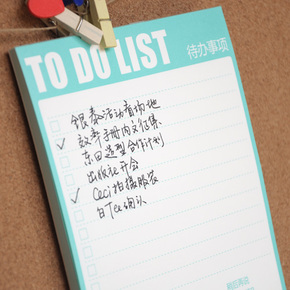 TO DO LIST
待办事项
银泰活动看场地
教学手册内文征集
京日造型合作计划
出版社开会
Ceci拍摄服装
白Tee确认